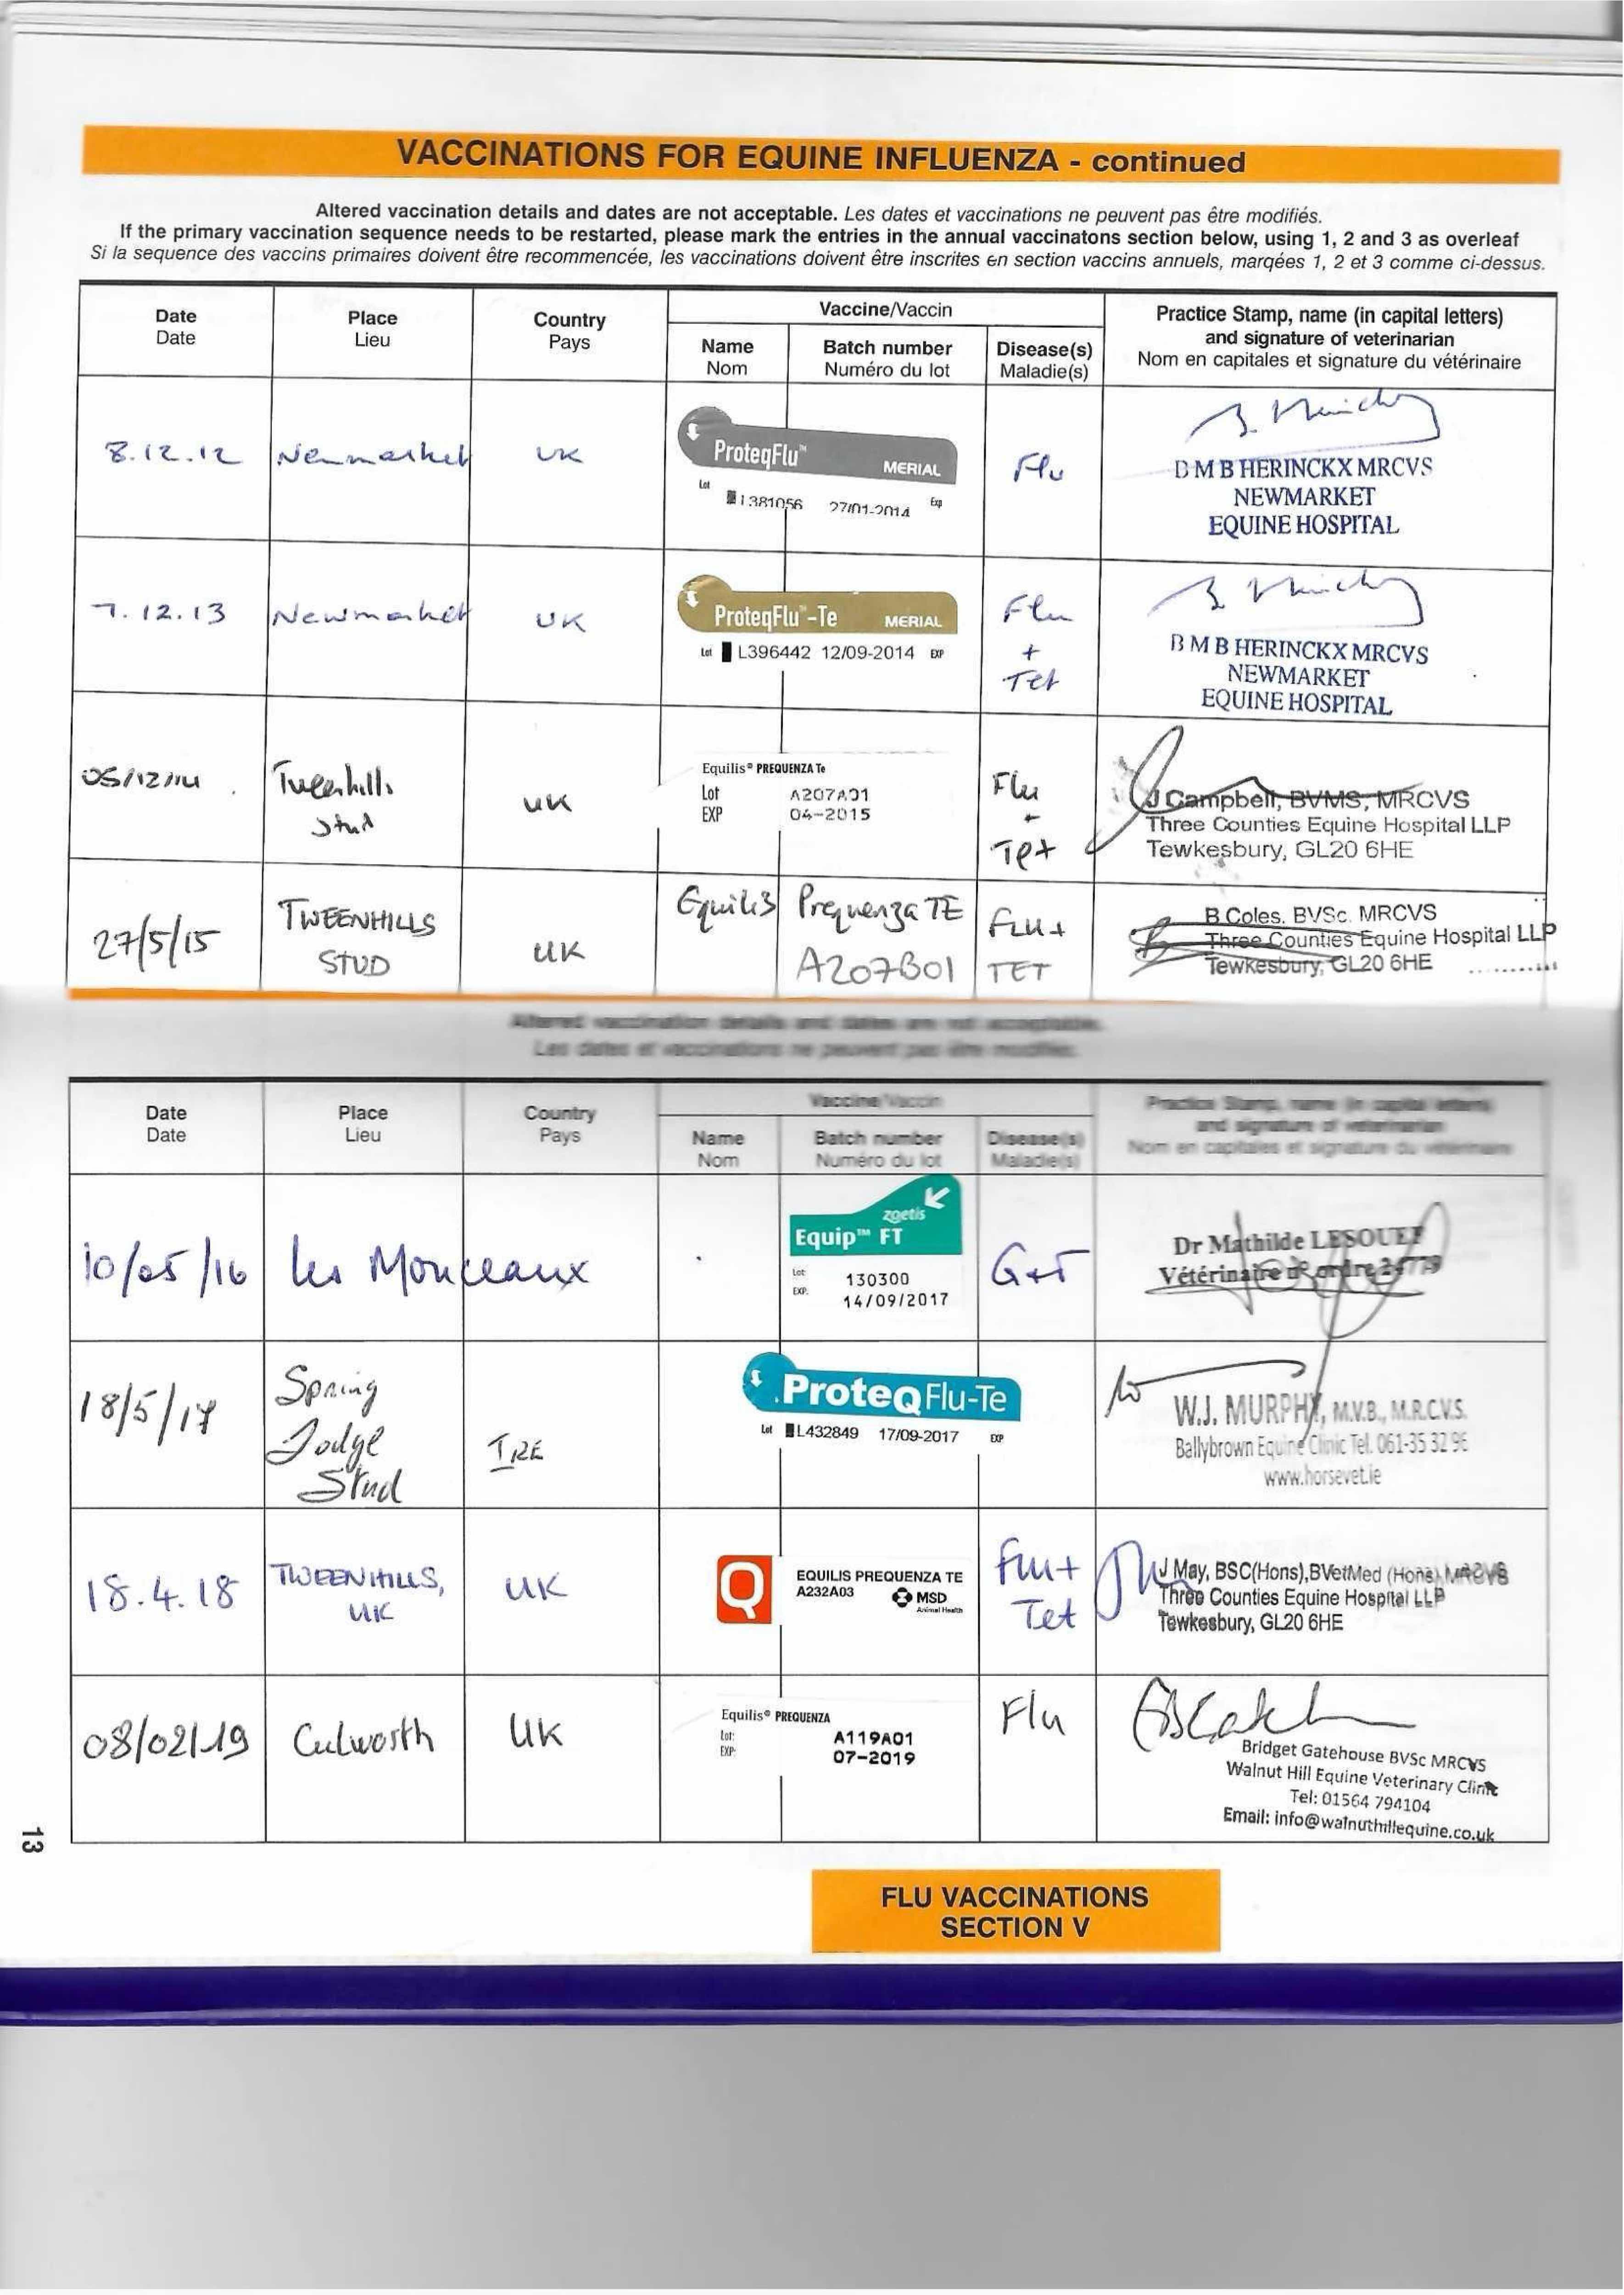 VACCINATIONS FOR EQUINE INFLUENZA - continued
Altered vaccination details and dates are not acceptable. Les dates et vaccinations ne peuvent pas être modifiés.
If the primary vaccination sequence needs to be restarted, please mark the entries in the annual vaccinatons section below, using 1, 2 and 3 as overleaf
Si la sequence des vaccins primaires doivent être recommencée, les vaccinations doivent être inscrites en section vaccins annuels, marqées 1, 2 et 3 comme ci-dessus.
Date
Date
Place
Lieu
Country
Pays
Vaccine/Vaccin
Name
Nom
Batch number
Numéro du lot
Disease(s)
Maladie(s)
Practice Stamp, name (in capital letters)
and signature of veterinarian
Nom en capitales et signature du vétérinaire
8.12.12
Newmarket
UK
ProteqFlu™
MERIAL
Lot
L381056 27/01-2014 Exp
Flu
B M B HERINCKX MRCVS
NEWMARKET
EQUINE HOSPITAL
7.12.13
Newmarket
UK
ProteqFlu™-Te MERIAL
Lot L396442 12/09-2014 EXP
Flu
+
Tet
B M B HERINCKX MRCVS
NEWMARKET
EQUINE HOSPITAL
05/12/14
Tweenhills
Stud
UK
Equilis® PREQUENZA Te
Lot A207A01
EXP 04-2015
Flu
+
Tet
J Campbell, BVMS, MRCVS
Three Counties Equine Hospital LLP
Tewkesbury, GL20 6HE
27/5/15
TWEENHILLS
STUD
UK
Equilis Prequenza TE
A207B01
FLU+
TET
B Coles. BVSc. MRCVS
Three Counties Equine Hospital LLP
Tewkesbury, GL20 6HE
Altered vaccination details and dates are not acceptable.
Les dates et vaccinations ne peuvent pas être modifiés.
Date
Date
Place
Lieu
Country
Pays
Vaccine/Vaccin
Name
Nom
Batch number
Numéro du lot
Disease(s)
Maladie(s)
Practice Stamp, name (in capital letters)
and signature of veterinarian
Nom en capitales et signature du vétérinaire
10/05/16
Les Monceaux
zoetis
Equip™ FT
Lot: 130300
EXP. 14/09/2017
G+T
Dr Mathilde LESOUEF
Vétérinaire n° ordre 24779
18/5/17
Spring
Lodge
Stud
IRE
ProteqFlu-Te
Lot L432849 17/09-2017 EXP
W.J. MURPHY, M.V.B., M.R.C.V.S.
Ballybrown Equine Clinic Tel. 061-35 32 96
www.horsevet.ie
18.4.18
TWEENHILLS,
UK
UK
Q
EQUILIS PREQUENZA TE
A232A03
MSD
Animal Health
Flu+
Tet
J May, BSC(Hons),BVetMed (Hons) MRCVS
Three Counties Equine Hospital LLP
Tewkesbury, GL20 6HE
08/02/19
Culworth
UK
Equilis® PREQUENZA
Lot: A119A01
EXP: 07-2019
Flu
Bridget Gatehouse BVSc MRCVS
Walnut Hill Equine Veterinary Clinic
Tel: 01564 794104
Email: info@walnuthillequine.co.uk
13
FLU VACCINATIONS
SECTION V